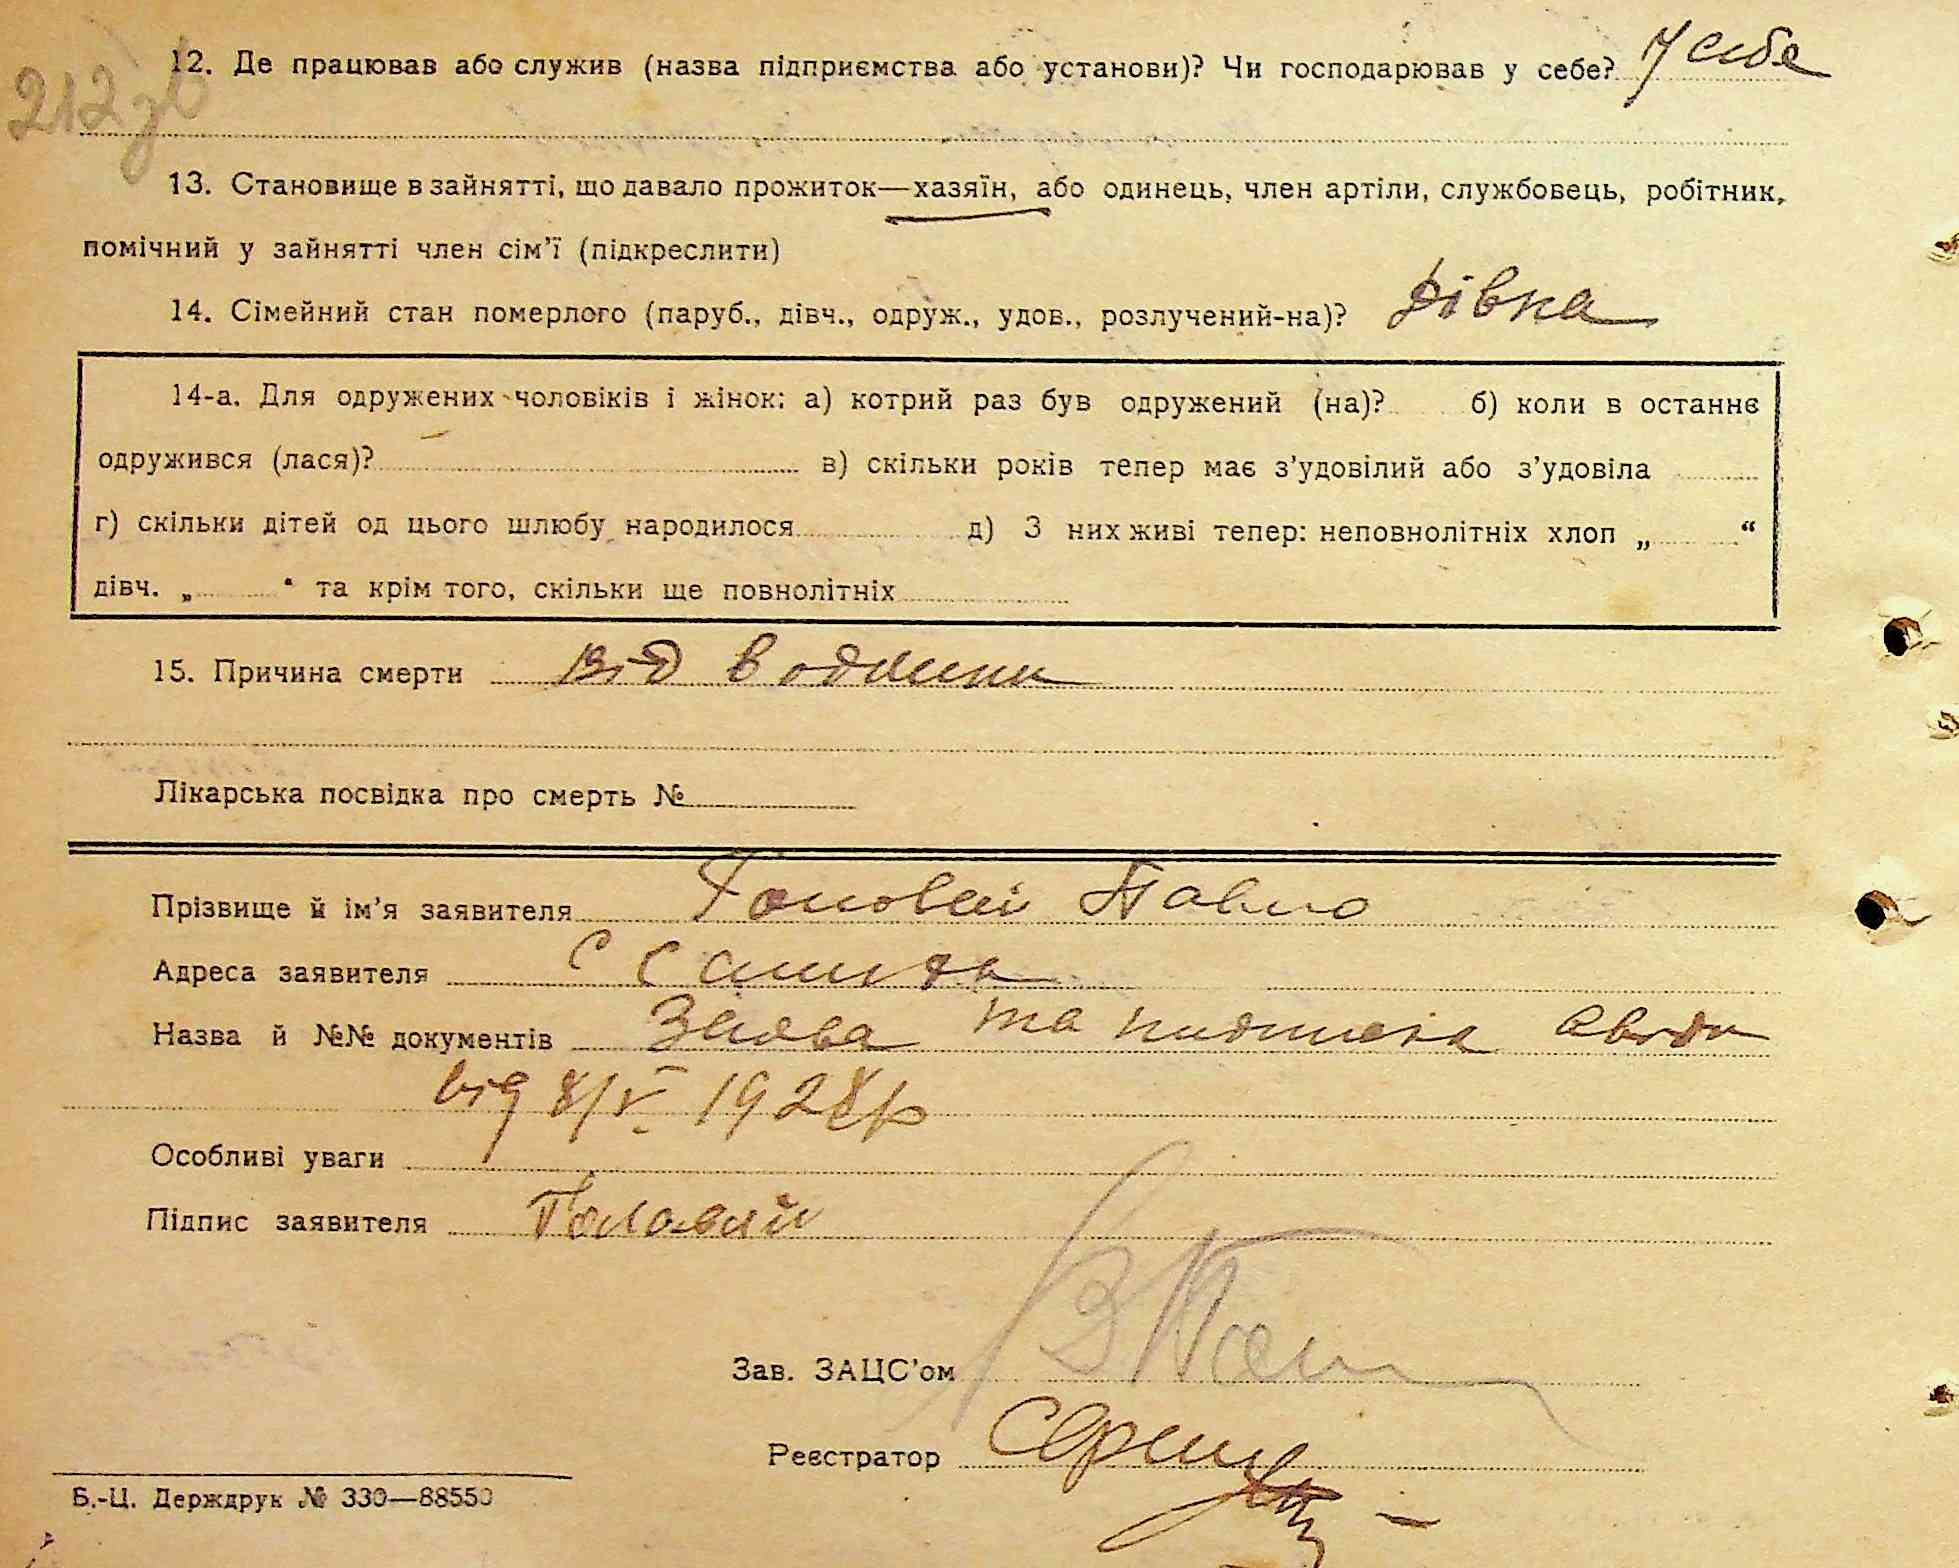 212 зв
12. Де працював або служив (назва підприємства або установи)? Чи господарював у себе? У себе
13. Становище в зайнятті, що давало прожиток—хазяїн, або одинець, член артіли, службовець, робітник,
помічний у зайнятті член сім’ї (підкреслити)
14. Сімейний стан померлого (паруб., дівч., одруж., удов., розлучений-на)? Дівка
14-а. Для одружених чоловіків і жінок: а) котрий раз був одружений (на)? б) коли в останнє
одружився (лася)? в) скільки років тепер має з’удовілий або з’удовіла
г) скільки дітей од цього шлюбу народилося д) З них живі тепер: неповнолітніх хлоп „ “
дівч. „ “ та крім того, скільки ще повнолітніх
15. Причина смерти від
Лікарська посвідка про смерть №
Прізвище й ім’я заявителя Головай Павло
Адреса заявителя с
Назва й №№ документів та
від 8/V 1928р
Особливі уваги
Підпис заявителя Головай
Зав. ЗАЦС’ом
Реєстратор
Б.-Ц. Держдрук № 330—88550